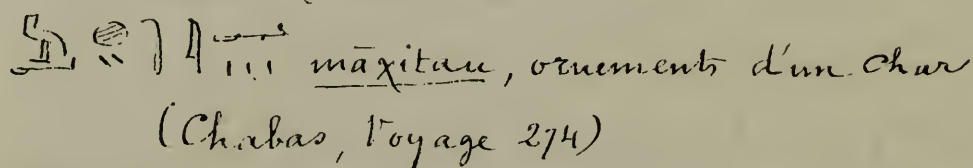 māχitau, ornements d'un char
(Chabas, Voyage 274)